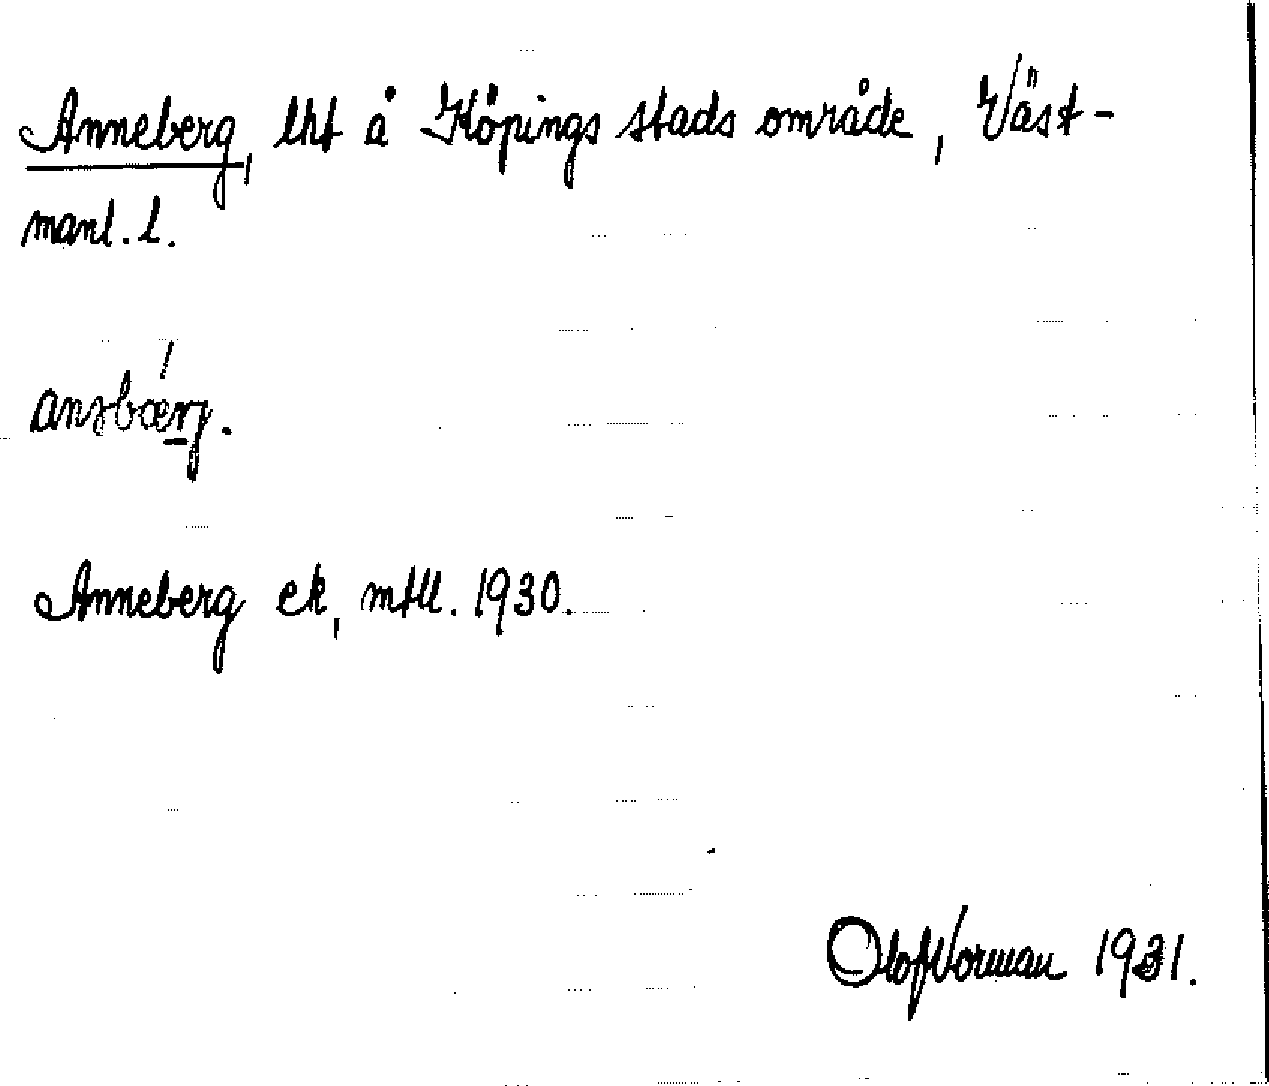 Anneberg, lht å Köpings stads område, Väst-
manl. l.
anəbærj.
Anneberg ek, mtll. 1930.
Olof Norman 1931.